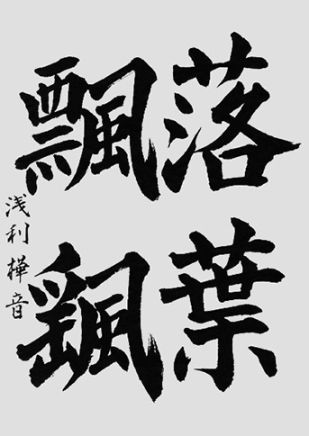 落葉
飄颻
浅利樺音